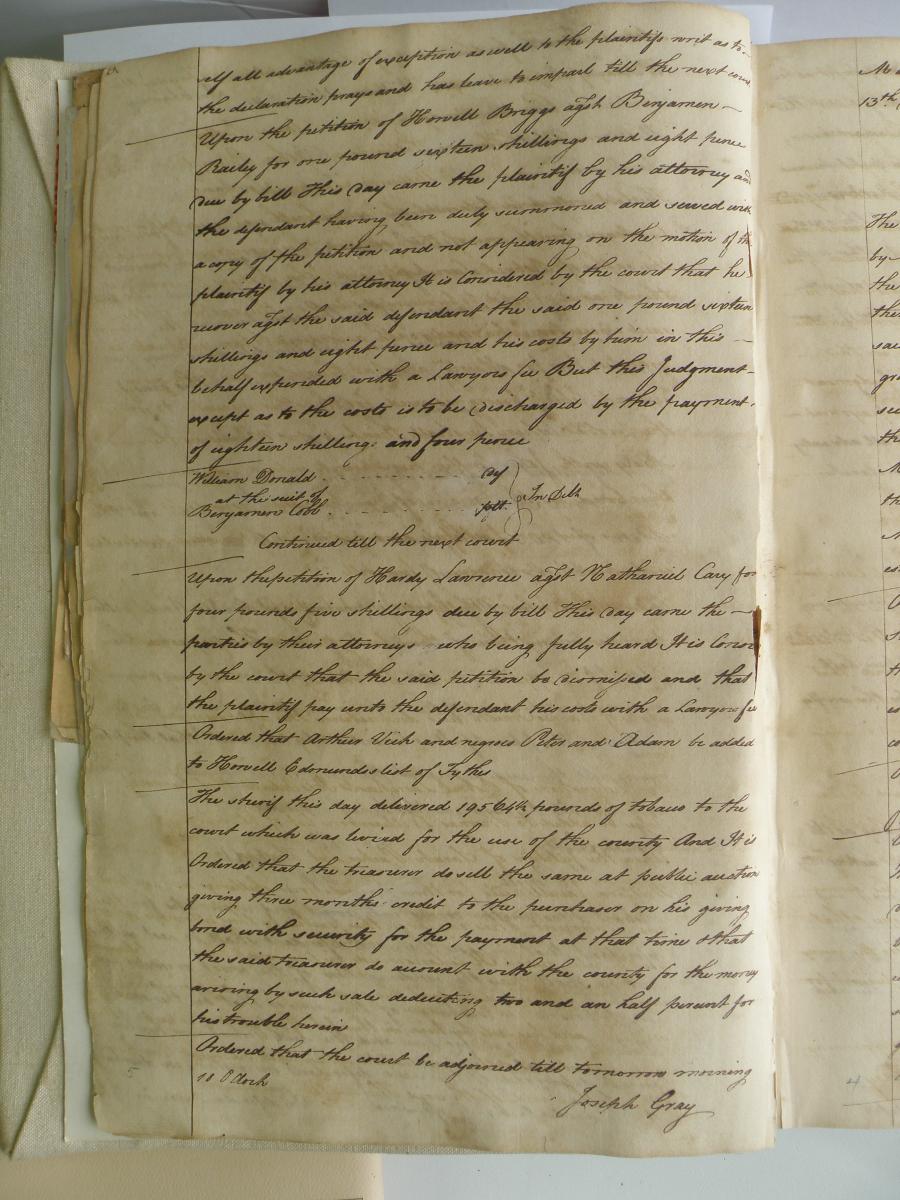 self all advantage of exception as well to the plaintifs writ as to
the declaration prays and has leave to imparl till the next court
Upon the petition of Howell Briggs agst Benjamen —
Raily for one pound sixteen shillings and eight pence
due by bill This day came the plaintif by his attorney and
the defendant having been duly summoned and served with
a copy of the petition and not appearing on the motion of the
plaintif by his attorney It is Considered by the court that he
recover agst the said defendant the said one pound sixteen
shillings and eight pence and his costs by him in this —
behalf expended with a Lawyors fee But this Judgment
except as to the costs is to be discharged by the payment
of eighteen shillings and four pence
William Donald
at the suit of
Benjamen Cobb plt. In Debt
Continued till the next court
Upon the petition of Hardy Lawrence agst Nathaniel Cary for
four pounds five shillings due by bill This day came the —
parties by their attorneys who being fully heard It is Consd
by the court that the said petition be dismissed and that
the plaintif pay unto the defendant his costs with a Lawyors fee
Ordered that Arthur Vick and negroes Peter and Adam be added
to Howell Edmunds list of Tythes
The sherif this day delivered pounds of tobacco to the
court which was levied for the use of the county And It is
Ordered that the treasurer do sell the same at public auction
giving three months credit to the purchaser on his giving
bond with security for the payment at that time & that
the said treasurer do account with the county for the money
arising by such sale deducting two and an half percent for
his trouble herein
Ordered that the court be adjourned till tomorrow morning
10 OClock
Joseph Gray
13th
The
by
the